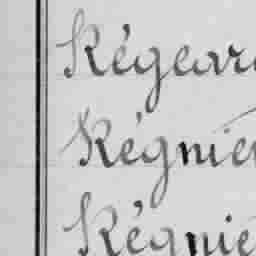 Régear
Régnie
Régnie